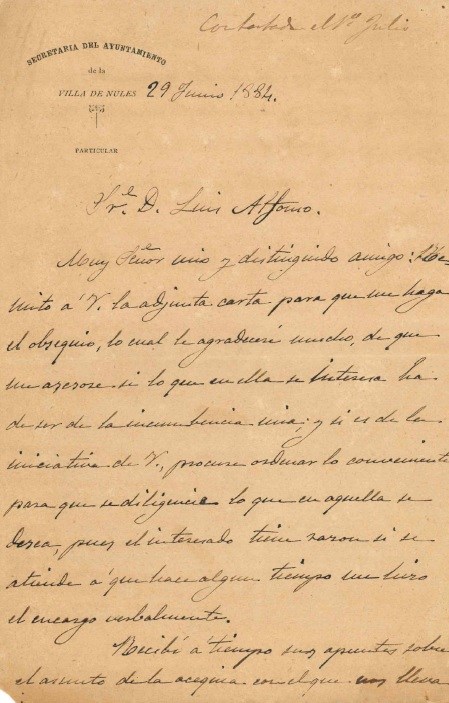 Contestada el 1º Julio
SECRETARIA DEL AYUNTAMIENTO
de la
VILLA DE NULES
29 Junio 1884.
PARTICULAR
Sr. D. Luis Alfonso.
Muy Señor mio y distinguido amigo: Re-
mito á V. la adjunta carta para que me haga
el obsequio, lo cual le agradeceré mucho, de que
me asesore si lo que en ella se interesa ha
de ser de la incumbencia mia; y si es de la
iniciativa de V., procure ordenar lo conveniente
para que se diligencie lo que en aquella se
desea, pues el interesado tiene razon si se
atiende á que hace algun tiempo me hizo
el encargo verbalmente.
Recibí á tiempo sus apuntes sobre
el asunto de la acequia con el que nos lleva